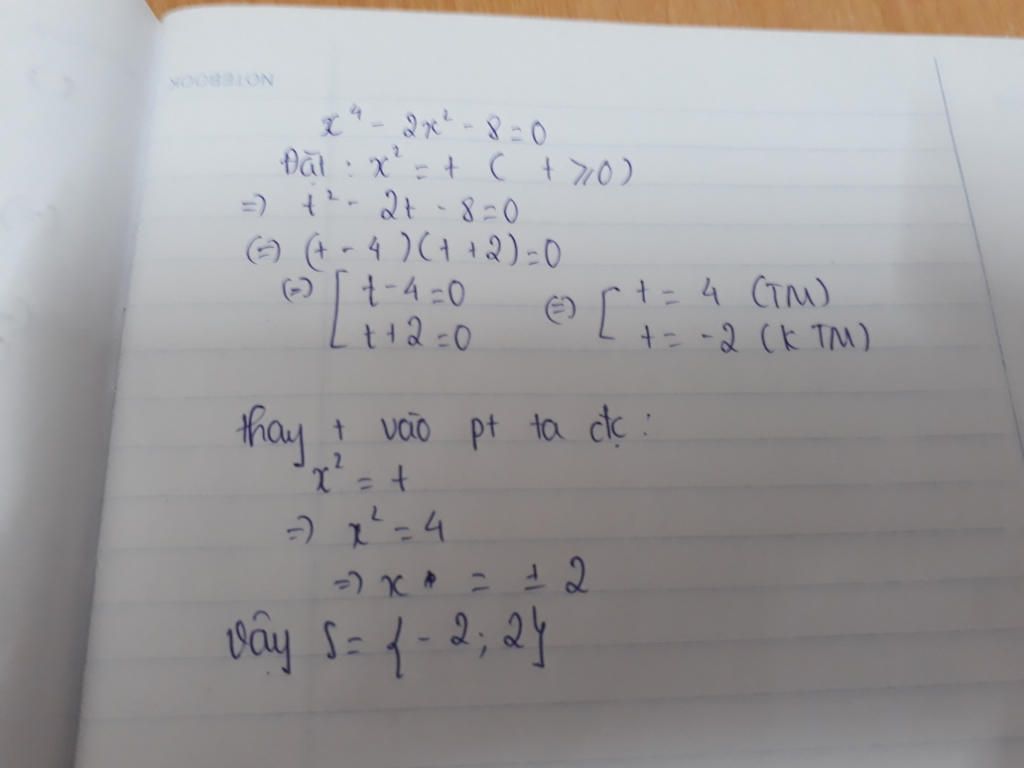 NOTEBOOK
x⁴ - 2x² - 8 = 0
Đặt : x² = t ( t ⩾ 0)
=) t² - 2t - 8 = 0
(=) (t - 4)(t + 2) = 0
(=) [ t - 4 = 0 (=) [ t = 4 (TM)
t + 2 = 0 t = -2 (K TM)
thay t vào pt ta đc :
x² = t
=) x² = 4
=) x = ± 2
Vậy S = { - 2 ; 2}